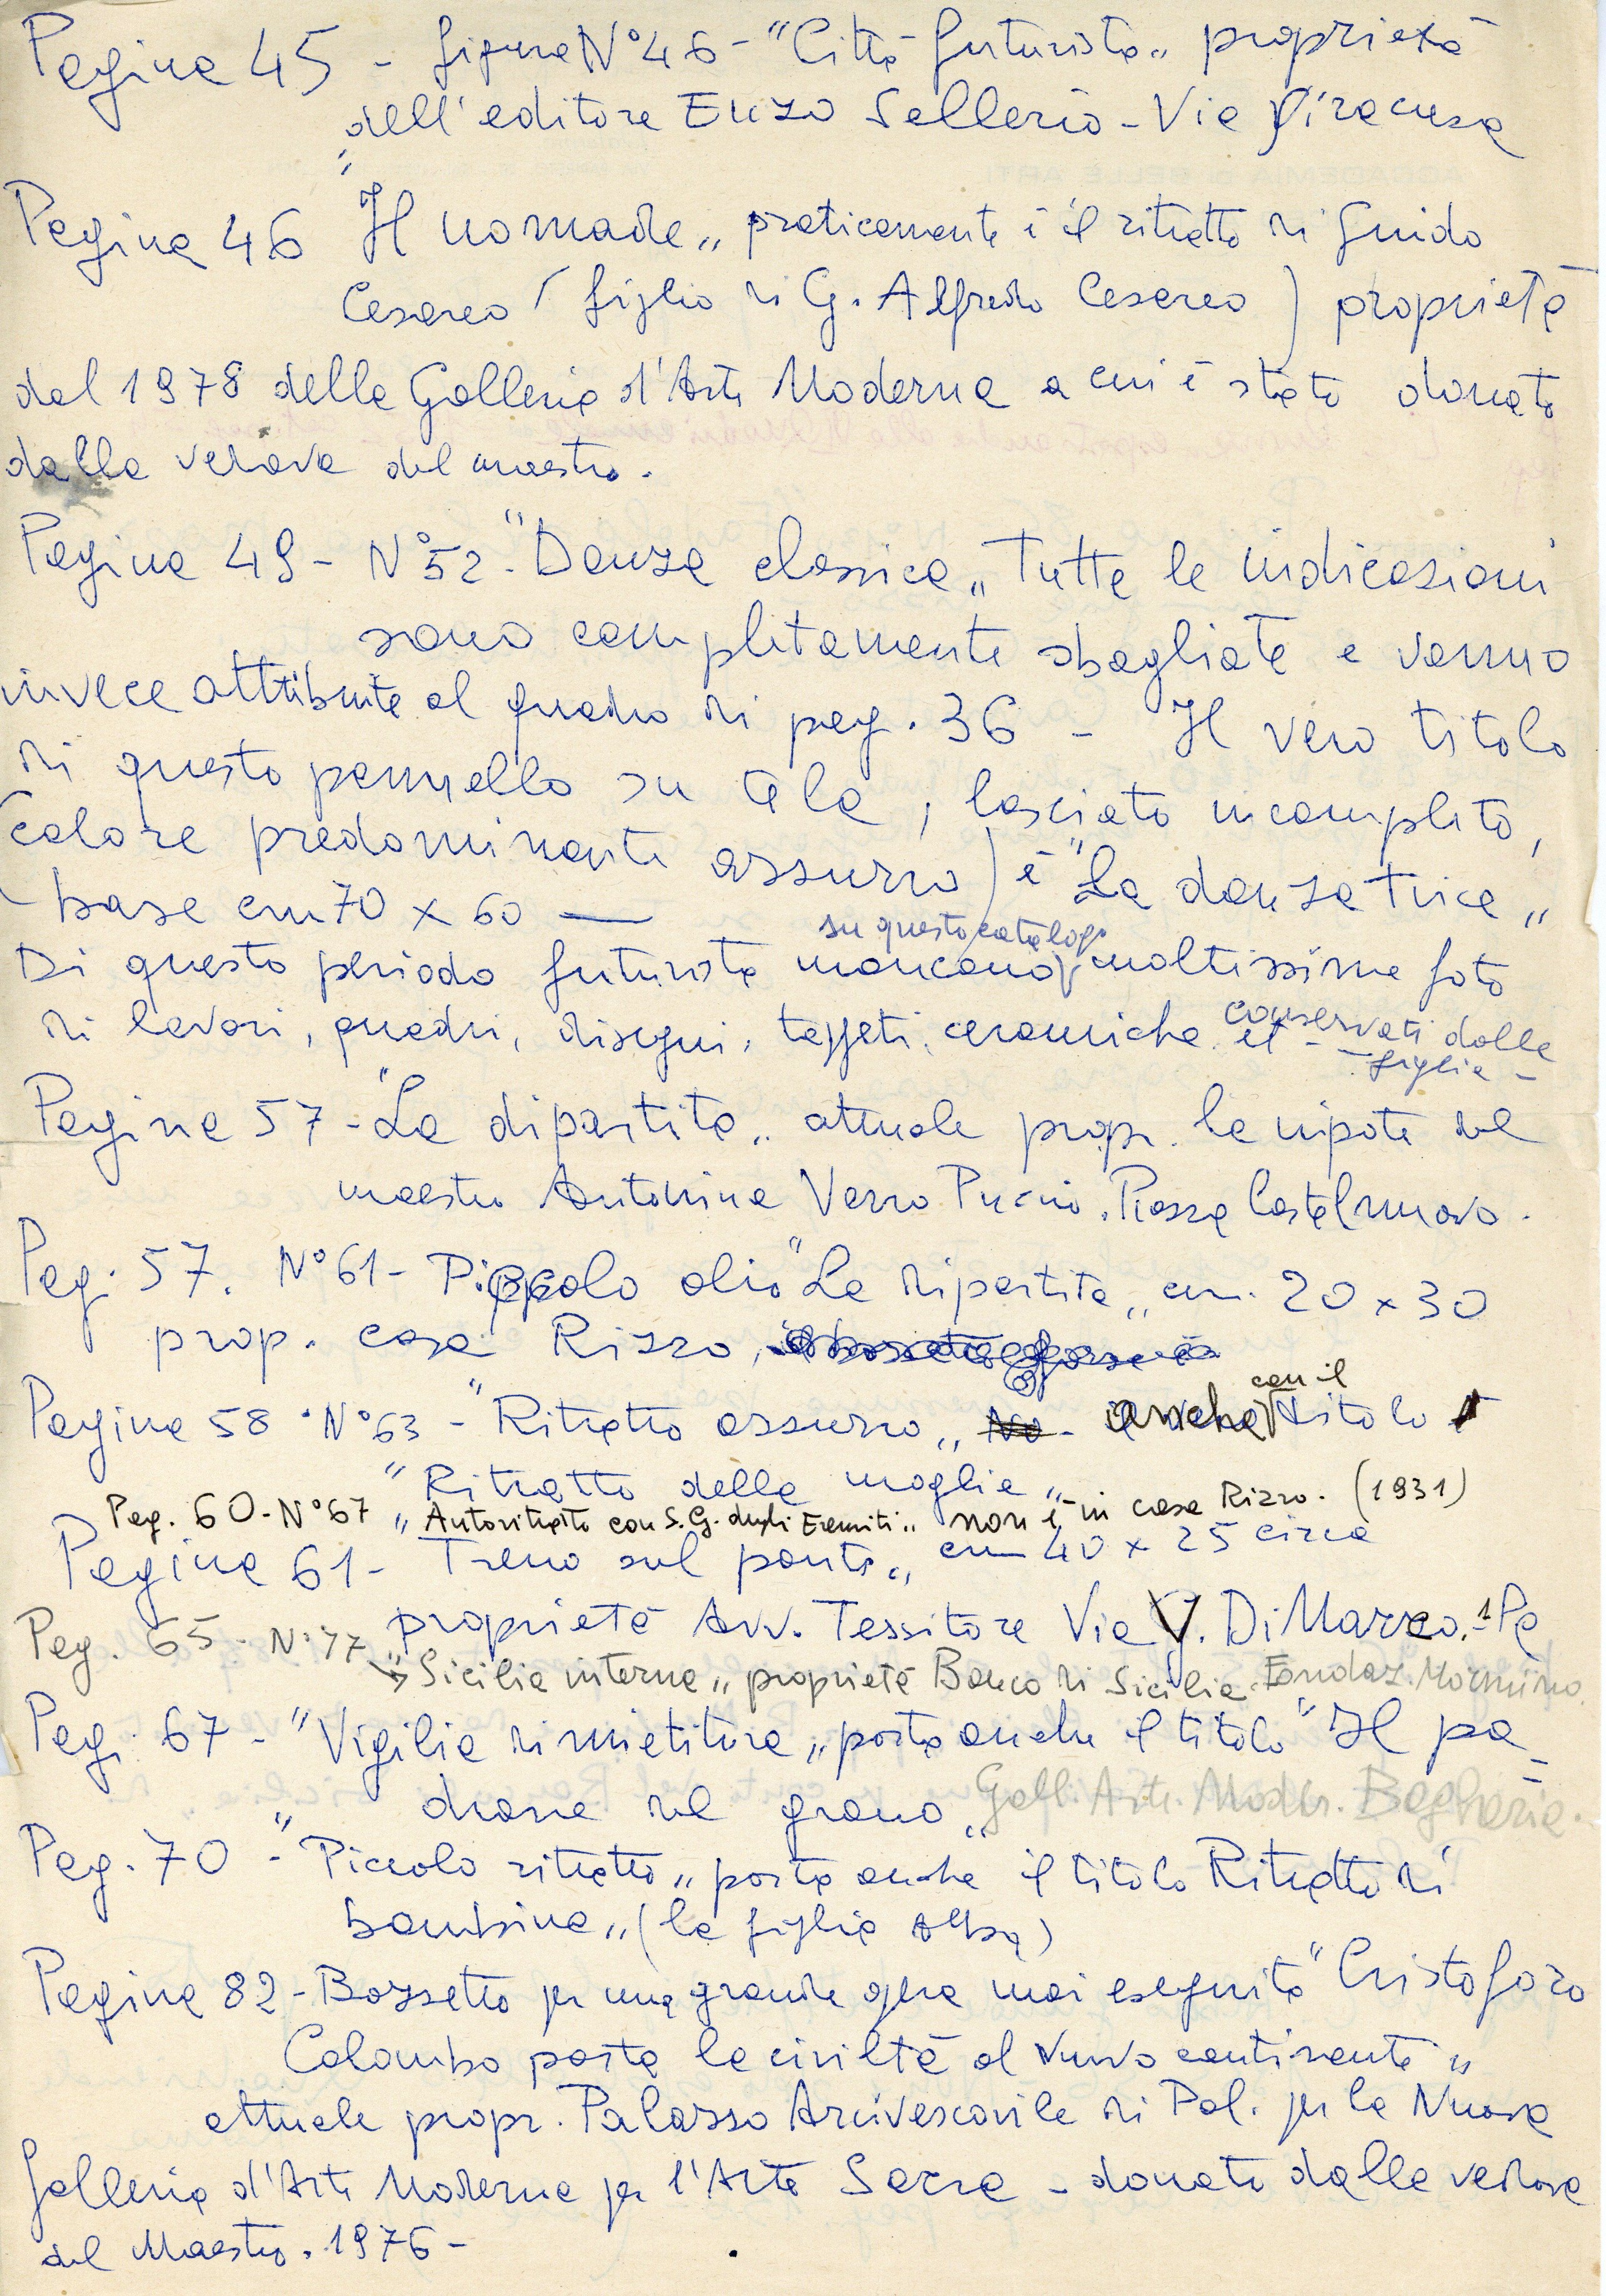 Pagina 45 - figura N° 46 - "Città futurista„ proprietà
dell'editore Enzo Sellerio - Via Siracusa
Pagina 46 "Il nomade„ praticamente è il ritratto di Guido
Cesareo (figlio di G. Alfredo Cesareo) proprietà
dal 1978 della Galleria d'Arte Moderna a cui è stato donato
dalla vedova del maestro.
Pagina 49 - N° 52 - "Danza classica„ Tutte le indicazioni
sono completamente sbagliate e vanno
invece attribuite al quadro di pag. 36 - Il vero titolo
di questo pannello su tela, lasciato incompleto,
(colore predominante azzurro) è "La danzatrice„
base cm 70 x 60 —
su questo catalogo
Di questo periodo futurista mancano moltissime foto
di lavori, quadri, disegni, tappeti, ceramiche et - conservati dalle
figlie -
Pagina 57 - "La dipartita„ attuale propr. la nipote del
maestro Antonina Verro Piazza Castelnuovo.
Pag. 57. N° 61 - Piccolo olio "La dipartita„ cm. 20 x 30
prop. casa Rizzo,
Pagina 58 - N° 63 - "Ritratto azzurro„ No - anche con il titolo
"Ritratto della moglie„
Pag. 60 - N° 67 "Autoritratto con S. G. degli Eremiti„ non è in casa Rizzo. (1931)
Pagina 61 - Treno sul ponte„ cm 40 x 25 circa
proprietà Avv. Tessitore Via G. Di Marzo, 1 Pa
Pag. 65 - N° 77
"Sicilia interna„ proprietà Banco di Sicilia - Fondaz. Mormino.
Pag. 67 - "Vigilia di mietitura„ porta anche il titolo "Il pa=
drone del grano„ Gall. Arte. Moder. Bagheria.
Pag. 70 - "Piccolo ritratto„ porta anche il titolo Ritratto di
bambina„ (la figlia Alba)
Pagina 82 - Bozzetto per una grande opera mai eseguita "Cristoforo
Colombo porta la civiltà al nuovo continente„
attuale propr. Palazzo Arcivescovile di Pal. per la Nuova
Galleria d'Arte Moderna per l'Arte Sacra - donato dalla vedova
del Maestro. 1976 -